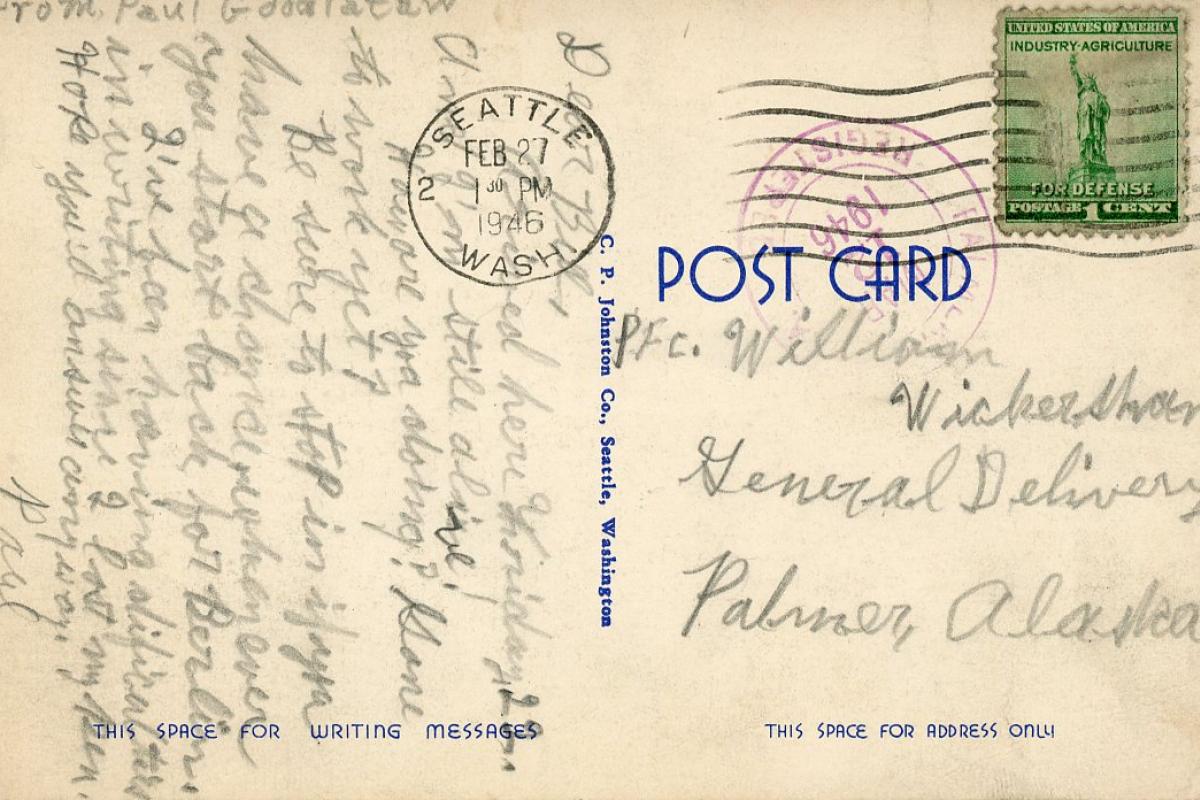 From, Paul
Dear Bill,
Arrived here Friday, 22.
And I'm still alive!
How are you doing? Gone
to work yet?
Be sure to stop in if you
have a chance when ever
you start back for Berlin.
I've been having dificulties
in writing since I lost my pen.
Hope you'll answer any way.
Paul
SEATTLE
FEB 27
2 1 30 PM
1946
WASH.
C. P. Johnston Co., Seattle, Washington
UNITED STATES OF AMERICA
INDUSTRY·AGRICULTURE
FOR DEFENSE
POSTAGE 1 CENT
REGISTERED
1946
POST CARD
Pfc. William
Wickersham
General Delivery
Palmer, Alaska
THIS SPACE FOR WRITING MESSAGES
THIS SPACE FOR ADDRESS ONLY